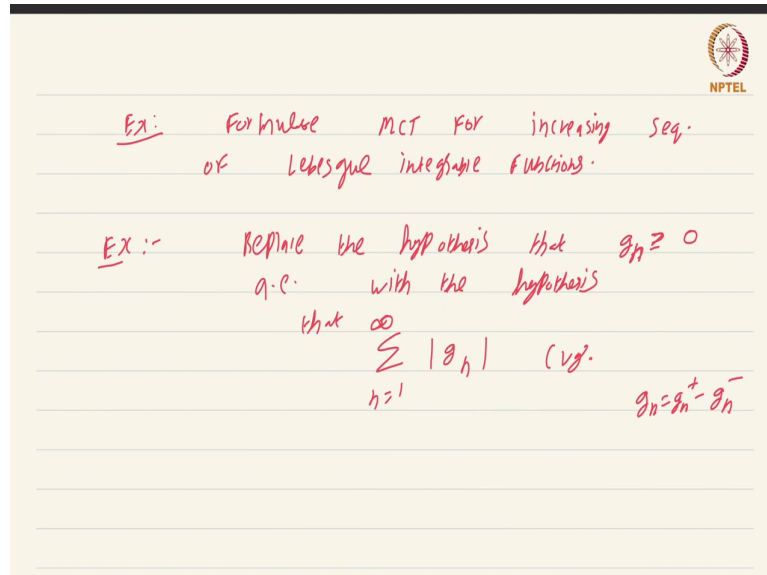 NPTEL
Ex: Formulate MCT for increasing seq.
of Lebesgue integrable functions.
Ex :- Replace the hypothesis that gₙ ≥ 0
a.e. with the hypothesis
that ∞
∑ |gₙ| cvg.
n=1
gₙ = gₙ⁺ - gₙ⁻